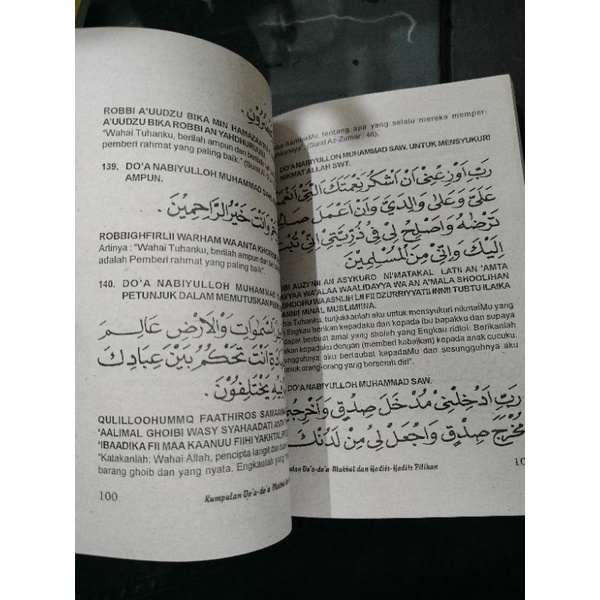 ROBBI A'UUDZU BIKA MIN HAMAZAATISY
A'UUDZU BIKA ROBBI AN YAHDHURUUN
"Wahai Tuhanku, berilah ampun dan berilah
pemberi rahmat yang paling baik." (Surat
139. DO'A NABIYULLOH MUHAMMAD SAW.
AMPUN.
وَأَنْتَ خَيْرُ الرَّاحِمِيْنَ
ROBBIGHFIRLII WARHAM WA ANTA KHOIRUR
Artinya : "Wahai Tuhanku, berilah ampun dan
adalah Pemberi rahmat yang paling baik."
140. DO'A NABIYULLOH MUHAMMAD
PETUNJUK DALAM MEMUTUSKAN
السَّمٰوَاتِ وَالْأَرْضِ عَالِمَ
أَنْتَ تَحْكُمُ بَيْنَ عِبَادِكَ
فِيْهِ يَخْتَلِفُوْنَ.
QULILLOOHUMMQ FAATHIROS SAMAAWA
'AALIMAL GHOIBI WASY SYAHAADATI ANTA
'IBAADIKA FII MAA KAANUU FIIHI YAKHTALIF
"Katakanlah: Wahai Allah, pencipta langit dan
barang ghoib dan yang nyata. Engkaulah yang
100
Kumpulan Do'a-do'a Makbul
hambaMu tentang apa yang selalu mereka memper-
(Surat Az-Zumar : 46).
DO'A NABIYULLOH MUHAMMAD SAW. UNTUK MENSYUKURI
NIKMAT ALLAH SWT.
رَبِّ أَوْزِعْنِيْ أَنْ أَشْكُرَ نِعْمَتَكَ الَّتِيْ أَنْعَمْ
عَلَيَّ وَعَلٰى وَالِدَيَّ وَأَنْ أَعْمَلَ صَالِ
تَرْضٰهُ وَأَصْلِحْ لِيْ فِيْ ذُرِّيَّتِيْ إِنِّيْ تُبْتُ
إِلَيْكَ وَإِنِّيْ مِنَ الْمُسْلِمِيْنَ
AUZI'NII AN ASYKURO NI'MATAKAL LATII AN 'AMTA
WA'ALAA WAALIDAYYA WA AN A'MALA SHOOLIHAN
WAASHLIH LII FII DZURRIYYATII INNII TUBTU ILAIKA
INNII MINAL MUSLIMIINA.
Tuhanku, tunjukkanlah aku untuk mensyukuri nikmatMu yang
Engkau berikan kepadaku dan kepada ibu bapakku dan supaya
berbuat amal yang sholeh yang Engkau ridloi. Berikanlah
kepadaku dengan (memberi kebaikan) kepada anak cucuku,
aku bertaubat kepadaMu dan sesungguhnya aku
orang-orang yang berserah diri".
DO'A NABIYULLOH MUHAMMAD SAW.
رَبِّ أَدْخِلْنِيْ مُدْخَلَ صِدْقٍ وَأَخْرِجْنِيْ
مُخْرَجَ صِدْقٍ وَاجْعَلْ لِيْ مِنْ لَدُنْكَ
Do'a-do'a Makbul dan Hadits-Hadits Pilihan